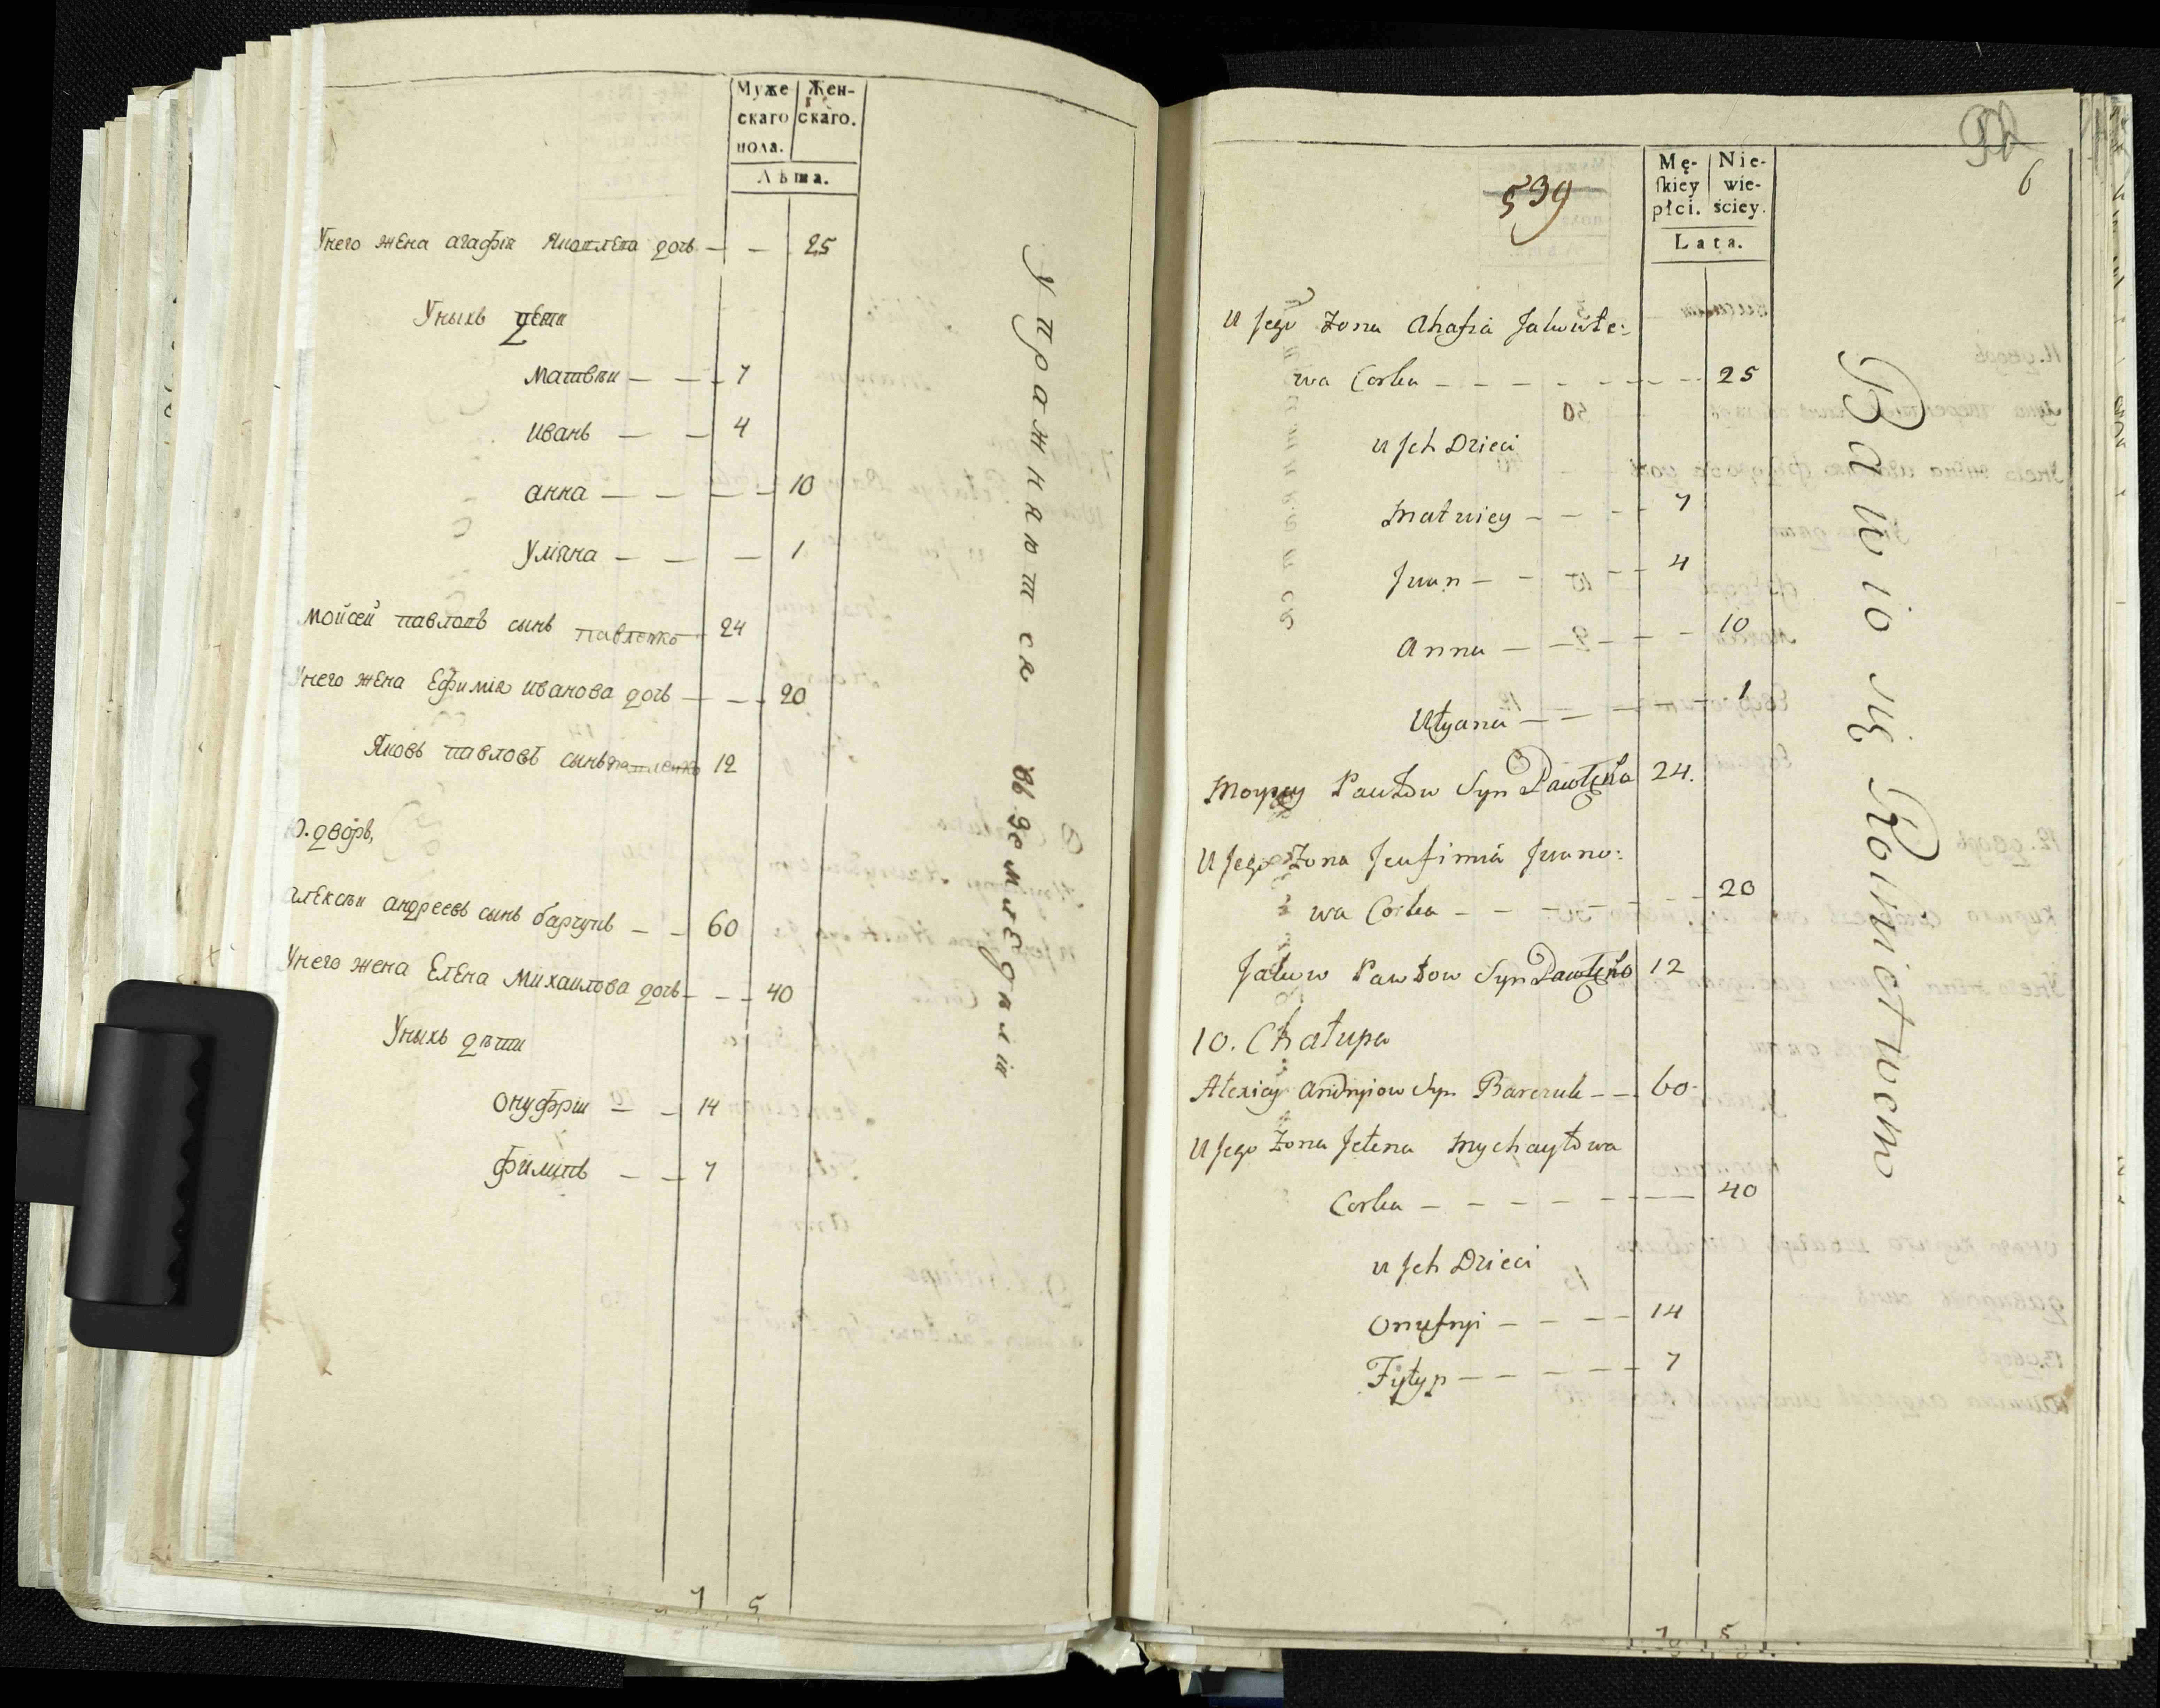 Муже
скаго
пола.
Жен-
скаго.
Лѣта.
Унего жена агафія Яковлева дочь — — 25
Унихъ дѣти
матвѣи — — 7
иванъ — — 4
анна — — — 10
Уляна — — — 1
мойсей павловъ сынъ павленко 24
Унего жена Ефимія иванова дочь — — 20
Яковъ павловъ сынъ павленко 12
10. дворъ,
алексѣи андреевъ сынъ барчукъ — — 60
Унего жена Елена михаилова дочь — — 40
Унихъ дѣти
онуфріи — — 14
филипъ — — 7
7 5
Упражняются въ земледѣліи
6
539
Mę-
skiey
płci.
Nie-
wie-
ściey.
Lata.
U Jego Żona Ahafia Jakowle-
wa Corka — — — — 25
u Jch Dzieci
Matwiey — — — 7
Jwan — — — 4
Anna — — — 10
Ulyana — — — 1
Moysey Pawłow Syn Pawłenko 24.
U Jego Żona Jeufimia Jwano:
wa Corka — — — — 20
Jakow Pawłow Syn Pawłenko 12
10. Chałupa
Alexiey Andryiow Syn Barczuk — — 60
U Jego Żona Jełena Mychayłowa
Corka — — — — 40
u Jch Dzieci
Onufryi — — — 14
Fyłyp — — — 7
7 5
Bawio się Rolnictwem